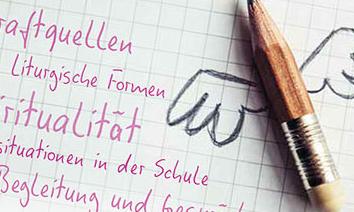 raftquellen
Liturgische Formen
iritualität
situationen in der Schule
Begleitung und